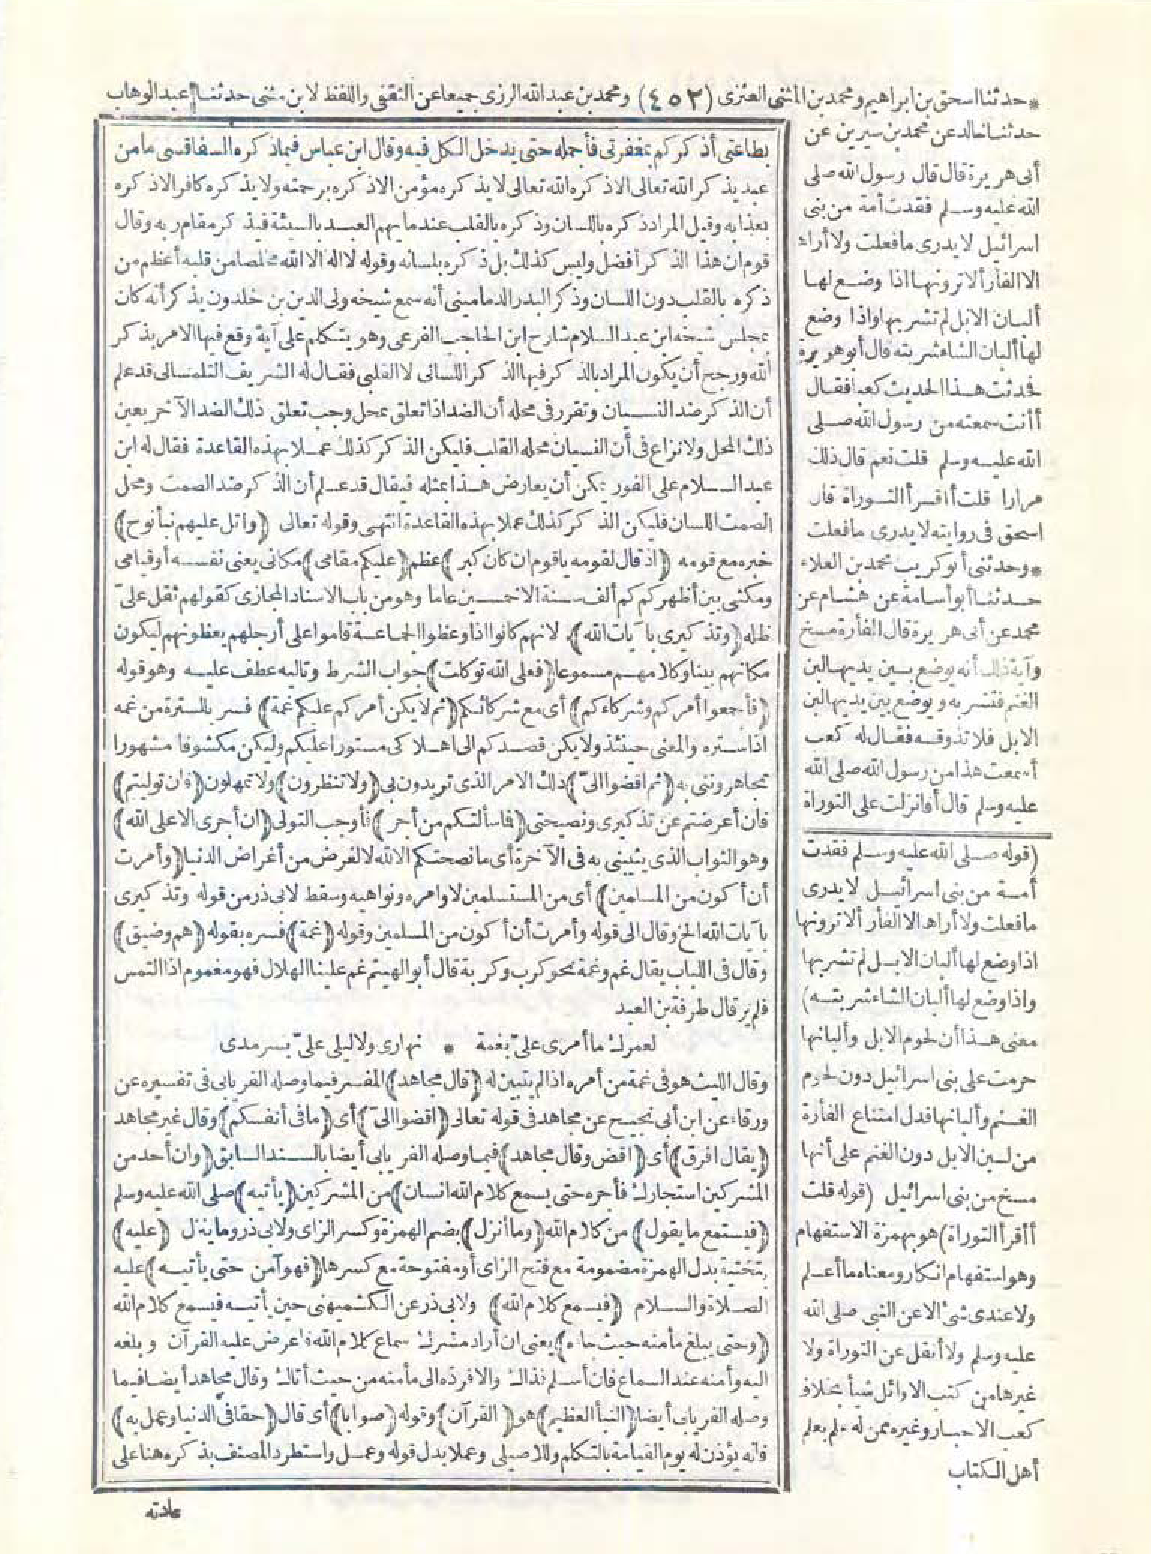 * حدثنا اسحق بن ابراهيم ومحمد بن المثنى العنزى (٤٥٢) ومحمد بن عبد الله الرزى جميعا عن الثقفى واللفظ لابن مثنى حدثنا عبد الوهاب
حدثنا خالد عن محمد بن سيرين عن
أبى هريرة قال قال رسول الله صلى
الله عليه وسلم فقدت أمة من بنى
اسرائيل لا يدرى ما فعلت ولا أراها
الا الفأر ألا ترونها اذا وضع لها
ألبان الابل لم تشربها واذا وضع
لها ألبان الشاء شربته قال أبو هريرة
فحدثت هذا الحديث كعبا فقال
أأنت سمعته من رسول الله صلى
الله عليه وسلم قلت نعم قال ذلك
مرارا قلت أأقرأ التوراة قال
اسحق فى روايته لا يدرى ما فعلت
* وحدثنى أبو كريب محمد بن العلاء
حدثنا أبو أسامة عن هشام عن
محمد عن أبى هريرة قال الفأرة مسخ
وآية ذلك أنه يوضع بين يديها لبن
الغنم فتشربه ويوضع بين يديها لبن
الابل فلا تذوقه فقال له كعب
أسمعت هذا من رسول الله صلى الله
عليه وسلم قال أفأنزلت على التوراة
(قوله صلى الله عليه وسلم فقدت
أمة من بنى اسرائيل لا يدرى
ما فعلت ولا أراها الا الفأر ألا ترونها
اذا وضع لها ألبان الابل لم تشربها
واذا وضع لها ألبان الشاء شربته)
معنى هذا أن لحوم الابل وألبانها
حرمت على بنى اسرائيل دون لحوم
الغنم وألبانها فدل امتناع الفأرة
من لبن الابل دون الغنم على أنها
مسخ من بنى اسرائيل (قوله قلت
أأقرأ التوراة) هو بهمزة الاستفهام
وهو استفهام انكار ومعناه ما أعلم
ولا عندى شئ الا عن النبى صلى الله
عليه وسلم ولا أنقل عن التوراة ولا
غيرها من كتب الاوائل شيأ بخلاف
كعب الاحبار وغيره ممن له علم بعلم
أهل الكتاب
بطاعتى أذكركم بمغفرتى فأجمله حتى يدخل الكل فيه وقال ابن عباس فيما ذكره السفاقسى ما من
عبد يذكر الله تعالى الا ذكره الله تعالى لا يذكره مؤمن الا ذكره برحمته ولا يذكره كافر الا ذكره
بعذابه وقيل المراد ذكره باللسان وذكره بالقلب عندما يهم العبد بالسيئة فيذكر مقام ربه وقال
قوم ان هذا الذكر أفضل وليس كذلك بل ذكره بلسانه وقوله لا اله الا الله مخلصا من قلبه أعظم من
ذكره بالقلب دون اللسان وذكر البدر الدمامينى أنه سمع شيخه ولى الدين بن خلدون يذكر أنه كان
بمجلس شيخه ابن عبد السلام شارح ابن الحاجب الفرعى وهو يتكلم على آية وقع فيها الامر بذكر
الله ورجح أن يكون المراد بالذكر فيها الذكر اللسانى لا القلبى فقال له الشريف التلمسانى قد علم
أن الذكر ضد النسيان وتقرر فى محله أن الضد اذا تعلق بمحل وجب تعلق ذلك الضد الآخر بعين
ذلك المحل ولا نزاع فى أن النسيان محله القلب فليكن الذكر كذلك عملا بهذه القاعدة فقال له ابن
عبد السلام على الفور يمكن أن يعارض هذا بمثله فيقال قد علم أن الذكر ضد الصمت ومحل
الصمت اللسان فليكن الذكر كذلك عملا بهذه القاعدة انتهى وقوله تعالى (واتل عليهم نبأ نوح)
خبره مع قومه (اذ قال لقومه يا قوم ان كان كبر) عظم (عليكم مقامى) مكانى يعنى نفسه أو قيامى
ومكثى بين أظهركم كم ألف سنة الا خمسين عاما وهو من باب الاسناد المجازى كقولهم ثقل علىّ
ظله (وتذكيرى بآيات الله) لانهم كانوا اذا وعظوا الجماعة قاموا على أرجلهم يعظونهم ليكون
مكانهم بينا وكلامهم مسموعا (فعلى الله توكلت) جواب الشرط وتاليه عطف عليه وهو قوله
(فأجمعوا أمركم وشركاءكم) أى مع شركائكم (ثم لا يكن أمركم عليكم غمة) فسر بالسترة من غمه
اذا ستره والمعنى حينئذ ولا يكن قصدكم الى اهلاكى مستورا عليكم وليكن مكشوفا مشهورا
تجاهروننى به (ثم اقضوا الىّ) ذلك الامر الذى تريدون بى (ولا تنظرون) ولا تمهلون (فان توليتم)
فان أعرضتم عن تذكيرى ونصيحتى (فما سألتكم من أجر) فأوجب التولى (ان أجرى الا على الله)
وهو الثواب الذى يثيبنى به فى الآخرة أى ما نصحتكم الا لله لا لغرض من أغراض الدنيا (وأمرت
أن أكون من المسلمين) أى من المستسلمين لاوامره ونواهيه وسقط لابى ذر من قوله وتذكيرى
بآيات الله الخ وقال الى قوله وأمرت أن أكون من المسلمين وقوله (غمة) فسره بقوله (هم وضيق)
وقال فى اللباب يقال غم وغمة نحو كرب وكربة قال أبو الهيثم غم علينا الهلال فهو مغموم اذا التمس
فلم ير قال طرفة بن العبد
لعمرك ما أمرى علىّ بغمة * نهارى ولا ليلى علىّ بسرمدى
وقال الليث هو فى غمة من أمره اذا لم يتبين له (قال مجاهد) المفسر فيما وصله الفريابى فى تفسيره عن
ورقاء عن ابن أبى نجيح عن مجاهد فى قوله تعالى (اقضوا الىّ) أى (ما فى أنفسكم) وقال غير مجاهد
(يقال افرق) أى (اقض وقال مجاهد) فيما وصله الفريابى أيضا بالسند السابق (وان أحد من
المشركين استجارك فأجره حتى يسمع كلام الله انسان) من المشركين (يأتيه) صلى الله عليه وسلم
(فيستمع ما يقول) من كلام الله (وما أنزل) بضم الهمزة وكسر الزاى ولابى ذر وما ينزل (عليه)
بتحتية بدل الهمزة مضمومة مع فتح الزاى أو مفتوحة مع كسرها (فهو آمن حتى يأتيه) عليه
الصلاة والسلام (فيسمع كلام الله) ولابى ذر عن الكشميهنى حين يأتيه فيسمع كلام الله
(وحتى يبلغ مأمنه حيث جاءه) يعنى ان أراد مشرك سماع كلام الله فاعرض عليه القرآن وبلغه
اليه وأمنه عند السماع فان أسلم فذاك والا فرده الى مأمنه من حيث أتاك وقال مجاهد أيضا فيما
وصله الفريابى أيضا (النبأ العظيم) هو (القرآن) وقوله (صوابا) أى قال (حقا فى الدنيا وعمل به)
فانه يؤذن له يوم القيامة بالتكلم وللاصيلى وعملا بدل قوله وعمل واستطرد المصنف بذكره هنا على
عادته